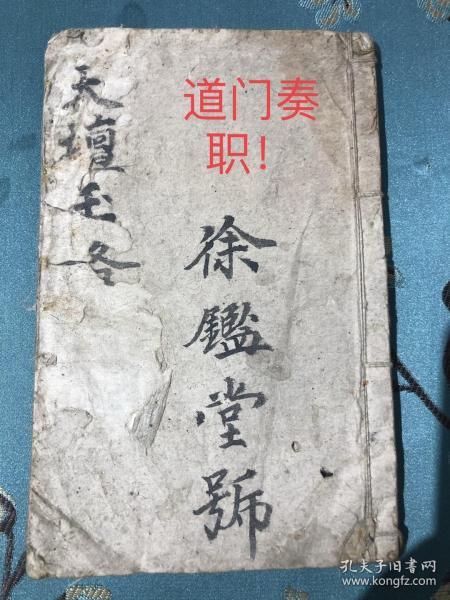 天壇玉冬
道门奏
职！
徐鑑堂號
孔夫子旧书网
www.kongfz.com